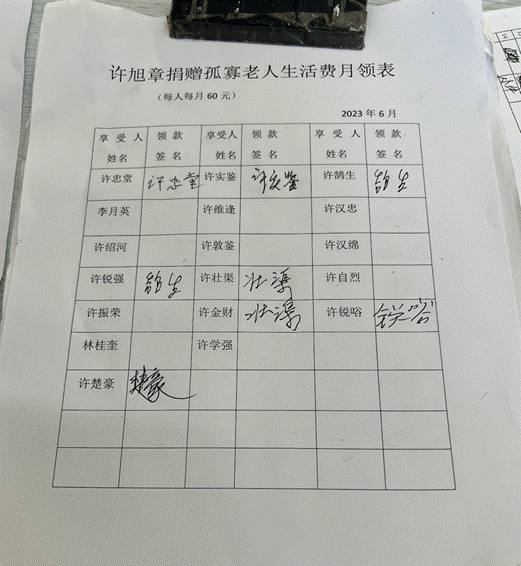 许旭章捐赠孤寡老人生活费月领表
（每人每月 60 元）
2023 年 6 月
享受人姓名 领款签名 享受人姓名 领款签名 享受人姓名 领款签名
许忠堂 许忠堂 许实鉴 许实鉴 许鹄生 鹄生
李月英 许维逢 许汉忠
许绍河 许敦鉴 许汉绵
许锐强 鹄生 许壮渠 壮渠 许自烈
许振荣 许金财 壮渠 许锐峪 锐峪
林桂奎 许学强
许楚豪 楚豪